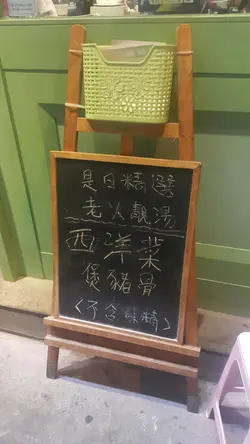 是日精選
老火靚湯
西洋菜
煲豬骨
(不含味精)